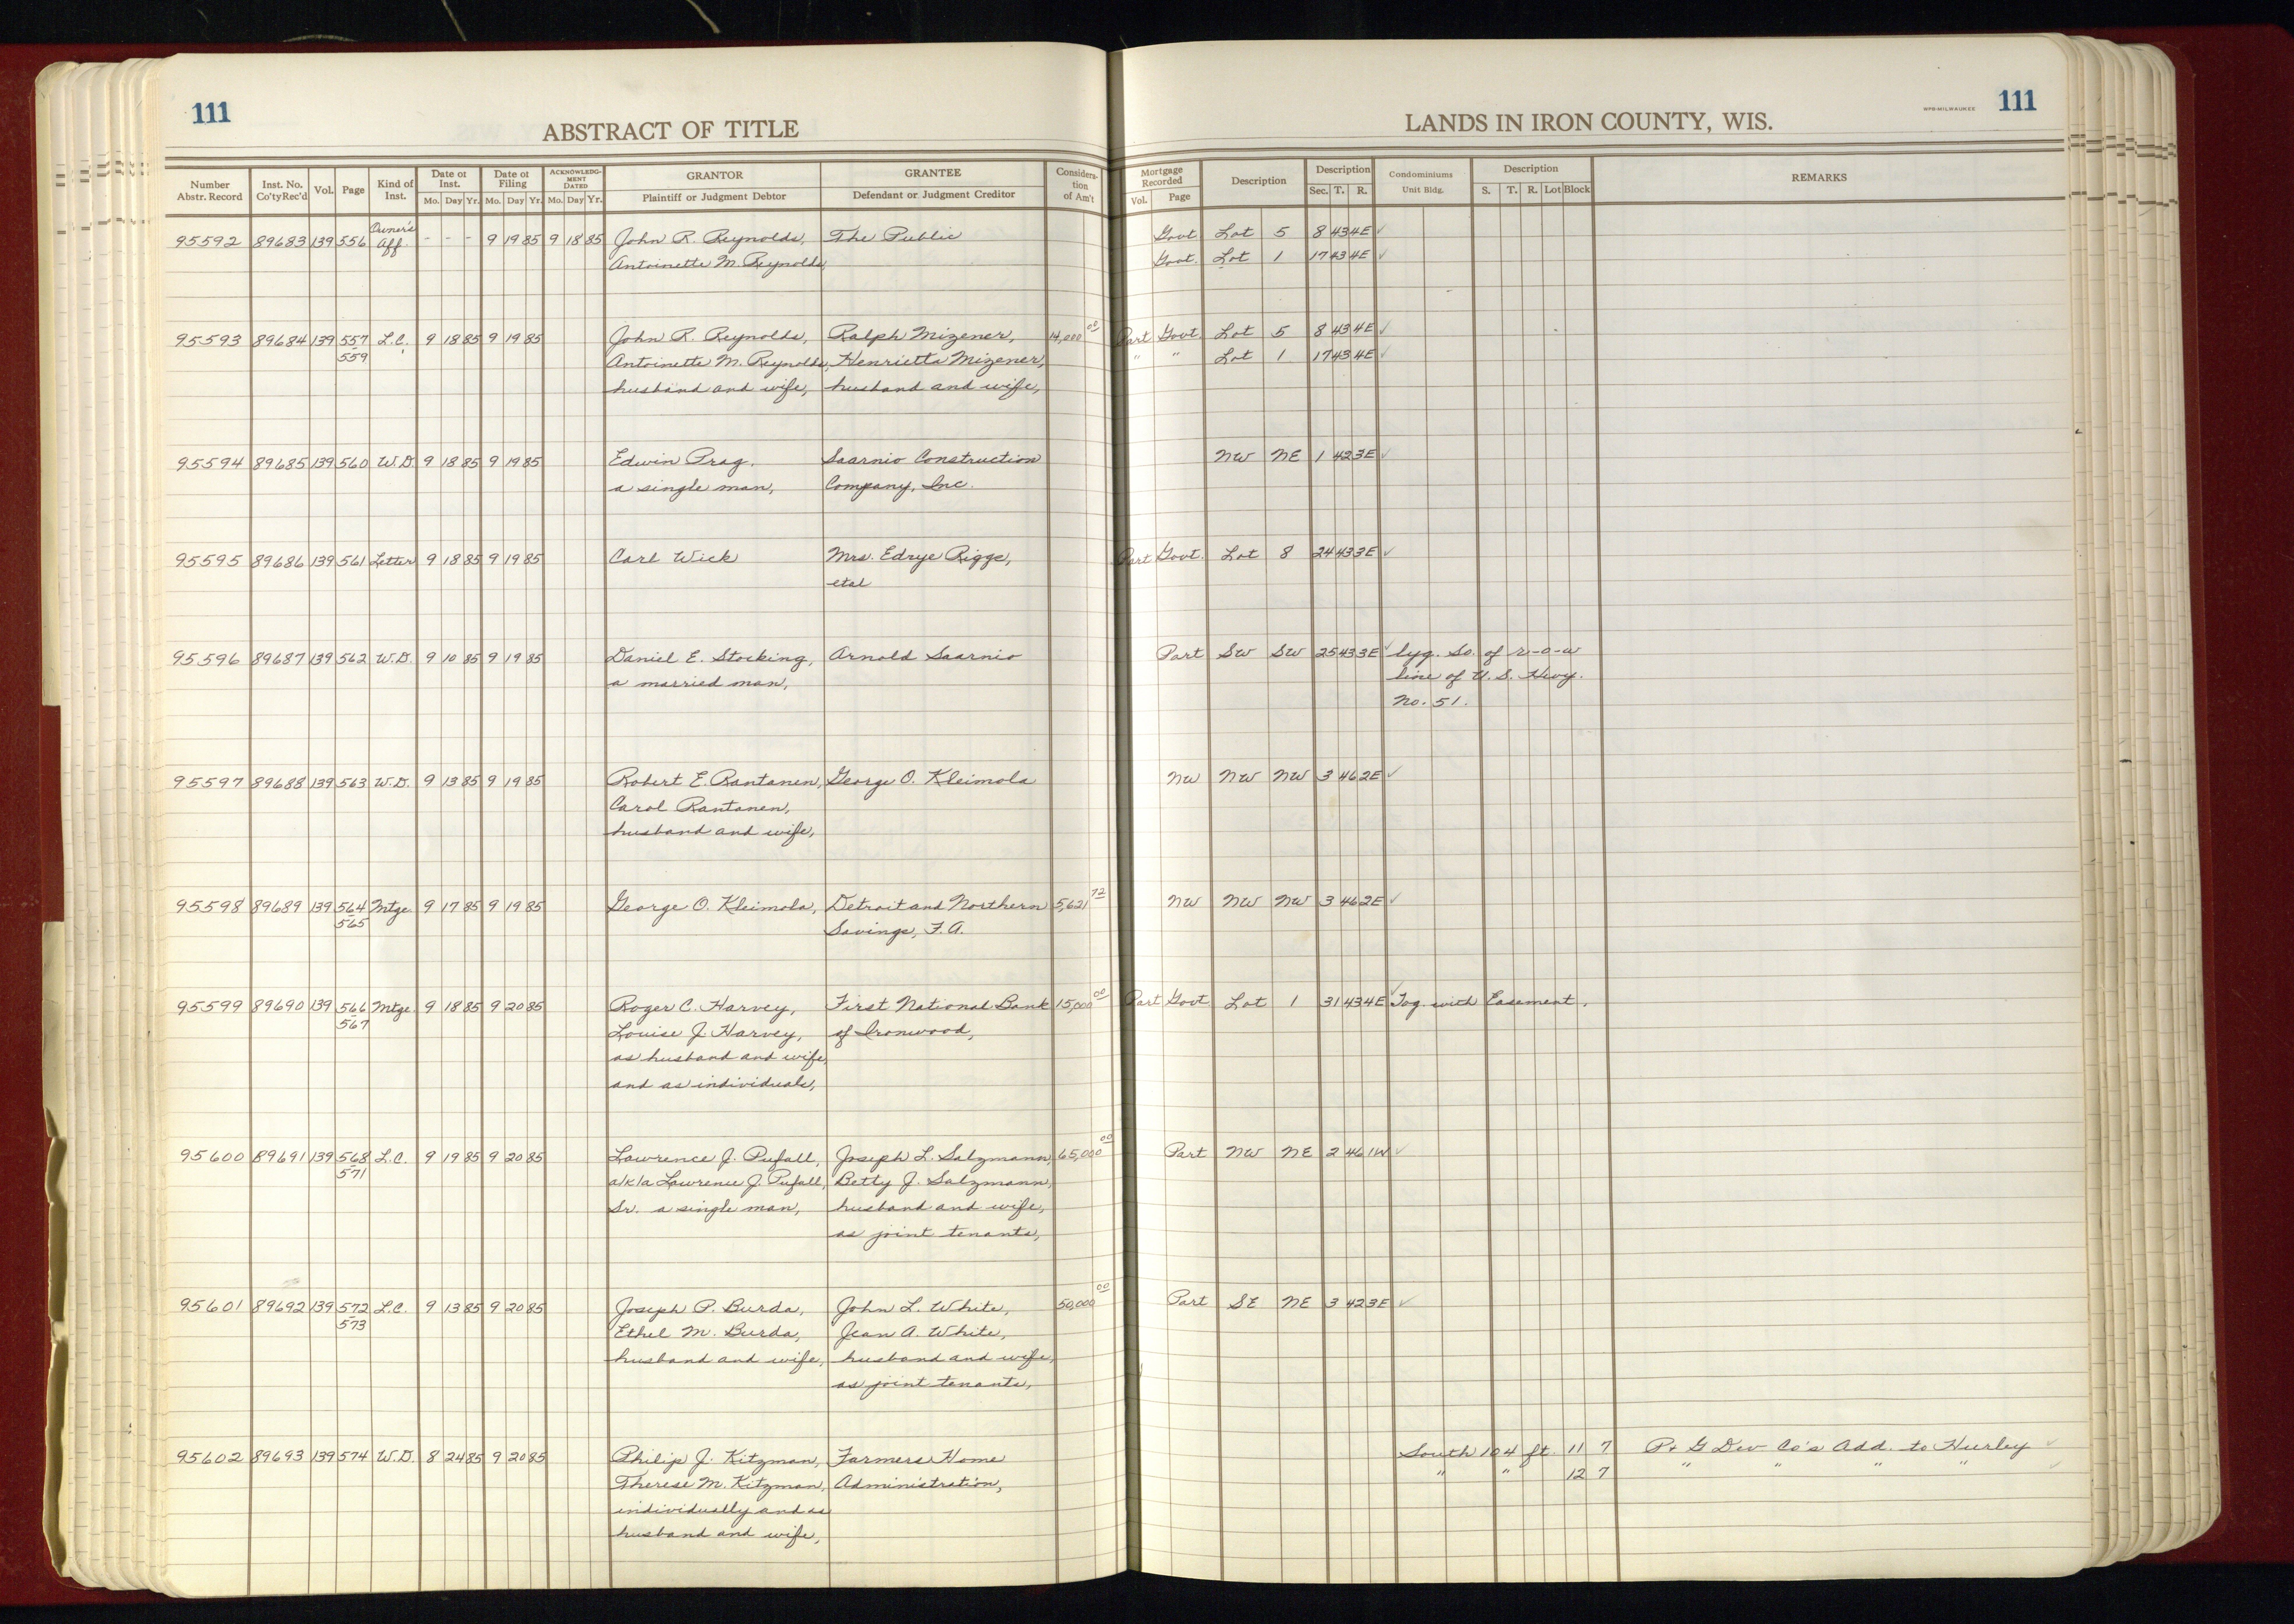 111
ABSTRACT OF TITLE
LANDS IN IRON COUNTY, WIS.
WPS-MILWAUKEE
111
Number Abstr. Record | Inst. No. Co'ty Rec'd | Vol. | Page | Kind of Inst. | Date of Inst. Mo. Day Yr. | Date of Filing Mo. Day Yr. | ACKNOWLEDGMENT DATED Mo. Day Yr. | GRANTOR Plaintiff or Judgment Debtor | GRANTEE Defendant or Judgment Creditor | Consideration of Am't | Mortgage Recorded Vol. Page | Description | Description Sec. T. R. | Condominiums Unit Bldg. | Description S. T. R. Lot Block | REMARKS
95592 89683 139 556 Owner's Aff. - - - 9 19 85 9 18 85 John R. Reynolds, The Public Govt. Lot 5 8 43 4E ✓
Antoinette M. Reynolds, Govt. Lot 1 17 43 4E ✓
95593 89684 139 557 L.C. 9 18 85 9 19 85 John R. Reynolds, Ralph Mizener, 14,000 00 Part Govt. Lot 5 8 43 4E ✓
559 Antoinette M. Reynolds, Henrietta Mizener, " " Lot 1 17 43 4E ✓
husband and wife, husband and wife,
95594 89685 139 560 W.D. 9 18 85 9 19 85 Edwin Prag, Saarnio Construction NW NE 1 42 3E ✓
a single man, Company, Inc.
95595 89686 139 561 Letter 9 18 85 9 19 85 Carl Wick Mrs. Edrye Riggs, Part Govt. Lot 8 24 43 3E ✓
etal
95596 89687 139 562 W.D. 9 10 85 9 19 85 Daniel E. Stocking, Arnold Saarnio Part SW SW 25 43 3E ✓ lyg. So. of r-o-w
a married man, line of U.S. Hwy.
No. 51.
95597 89688 139 563 W.D. 9 13 85 9 19 85 Robert E. Rantanen, George O. Kleimola NW NW NW 3 46 2E ✓
Carol Rantanen,
husband and wife,
95598 89689 139 564 Mtge. 9 17 85 9 19 85 George O. Kleimola, Detroit and Northern 5,621 72 NW NW NW 3 46 2E ✓
565 Savings, F.A.
95599 89690 139 566 Mtge. 9 18 85 9 20 85 Roger C. Harvey, First National Bank 15,000 00 Part Govt. Lot 1 31 43 4E ✓ Tog. with Easement.
567 Louise J. Harvey, of Ironwood,
as husband and wife,
and as individuals,
95600 89691 139 568 L.C. 9 19 85 9 20 85 Lawrence J. Pufall, Joseph L. Salzmann, 65,000 00 Part NW NE 2 46 1W ✓
571 a/k/a Lawrence J. Pufall, Betty J. Salzmann,
Sr. a single man, husband and wife,
as joint tenants,
95601 89692 139 572 L.C. 9 13 85 9 20 85 Joseph P. Burda, John L. White, 50,000 00 Part SE NE 3 42 3E ✓
573 Ethel M. Burda, Jean A. White,
husband and wife, husband and wife,
as joint tenants,
95602 89693 139 574 W.D. 8 24 85 9 20 85 Philip J. Kitzman, Farmers Home South 104 ft. 11 7 P+ G Dev Co's Add. to Hurley ✓
Therese M. Kitzman, Administration, " " 12 7 " " " " ✓
individually and as
husband and wife,